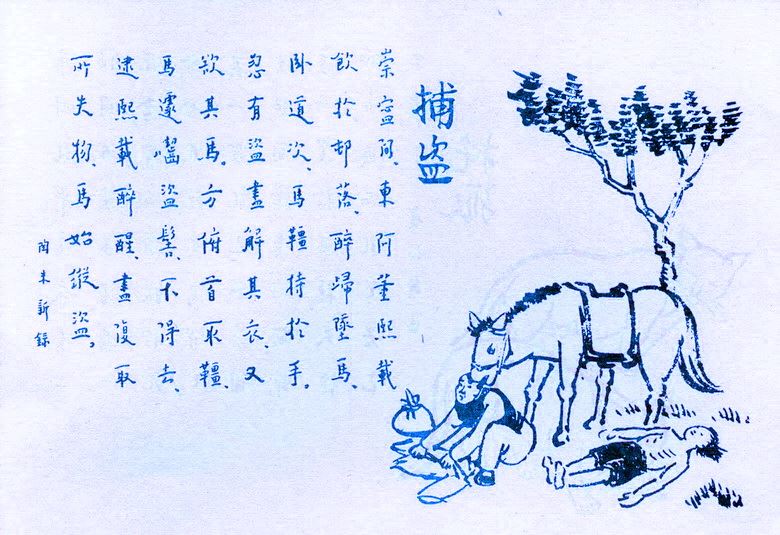 捕盜
崇寍間、東阿董熙載
飲於邨落、醉歸墜馬、
卧道次、馬韁持於手。
忽有盜盡解其衣、又
欲其馬。方俯首取韁、
馬遽囓盜髻、不得去、
逮熙載醉醒、盡復取
所失物、馬始縱盜。
閑未新錄